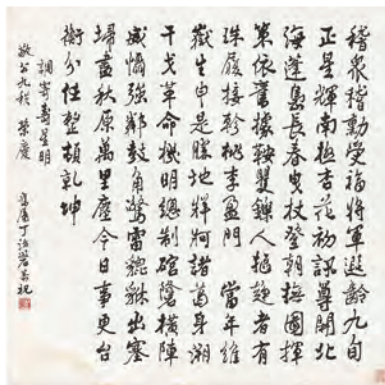 稽眾稽勳受福將軍遐齡九旬
正星輝南極杏花初訊尊開北
海蓬島長春曳杖登朝撫圖揮
策依舊據鞍矍鑠人趨筵者有
珠履接軫桃李盈門 當年維
嶽生申是勝地牂牁諸葛身溯
干戈革命機明總制橫陣
威懾強鄰鼓角驚雷貔貅出塞
埽盡秋原萬里塵今日事更台
衡分任整頓乾坤
調寄壽星明
敬公九秩 榮慶
丁治磐恭祝